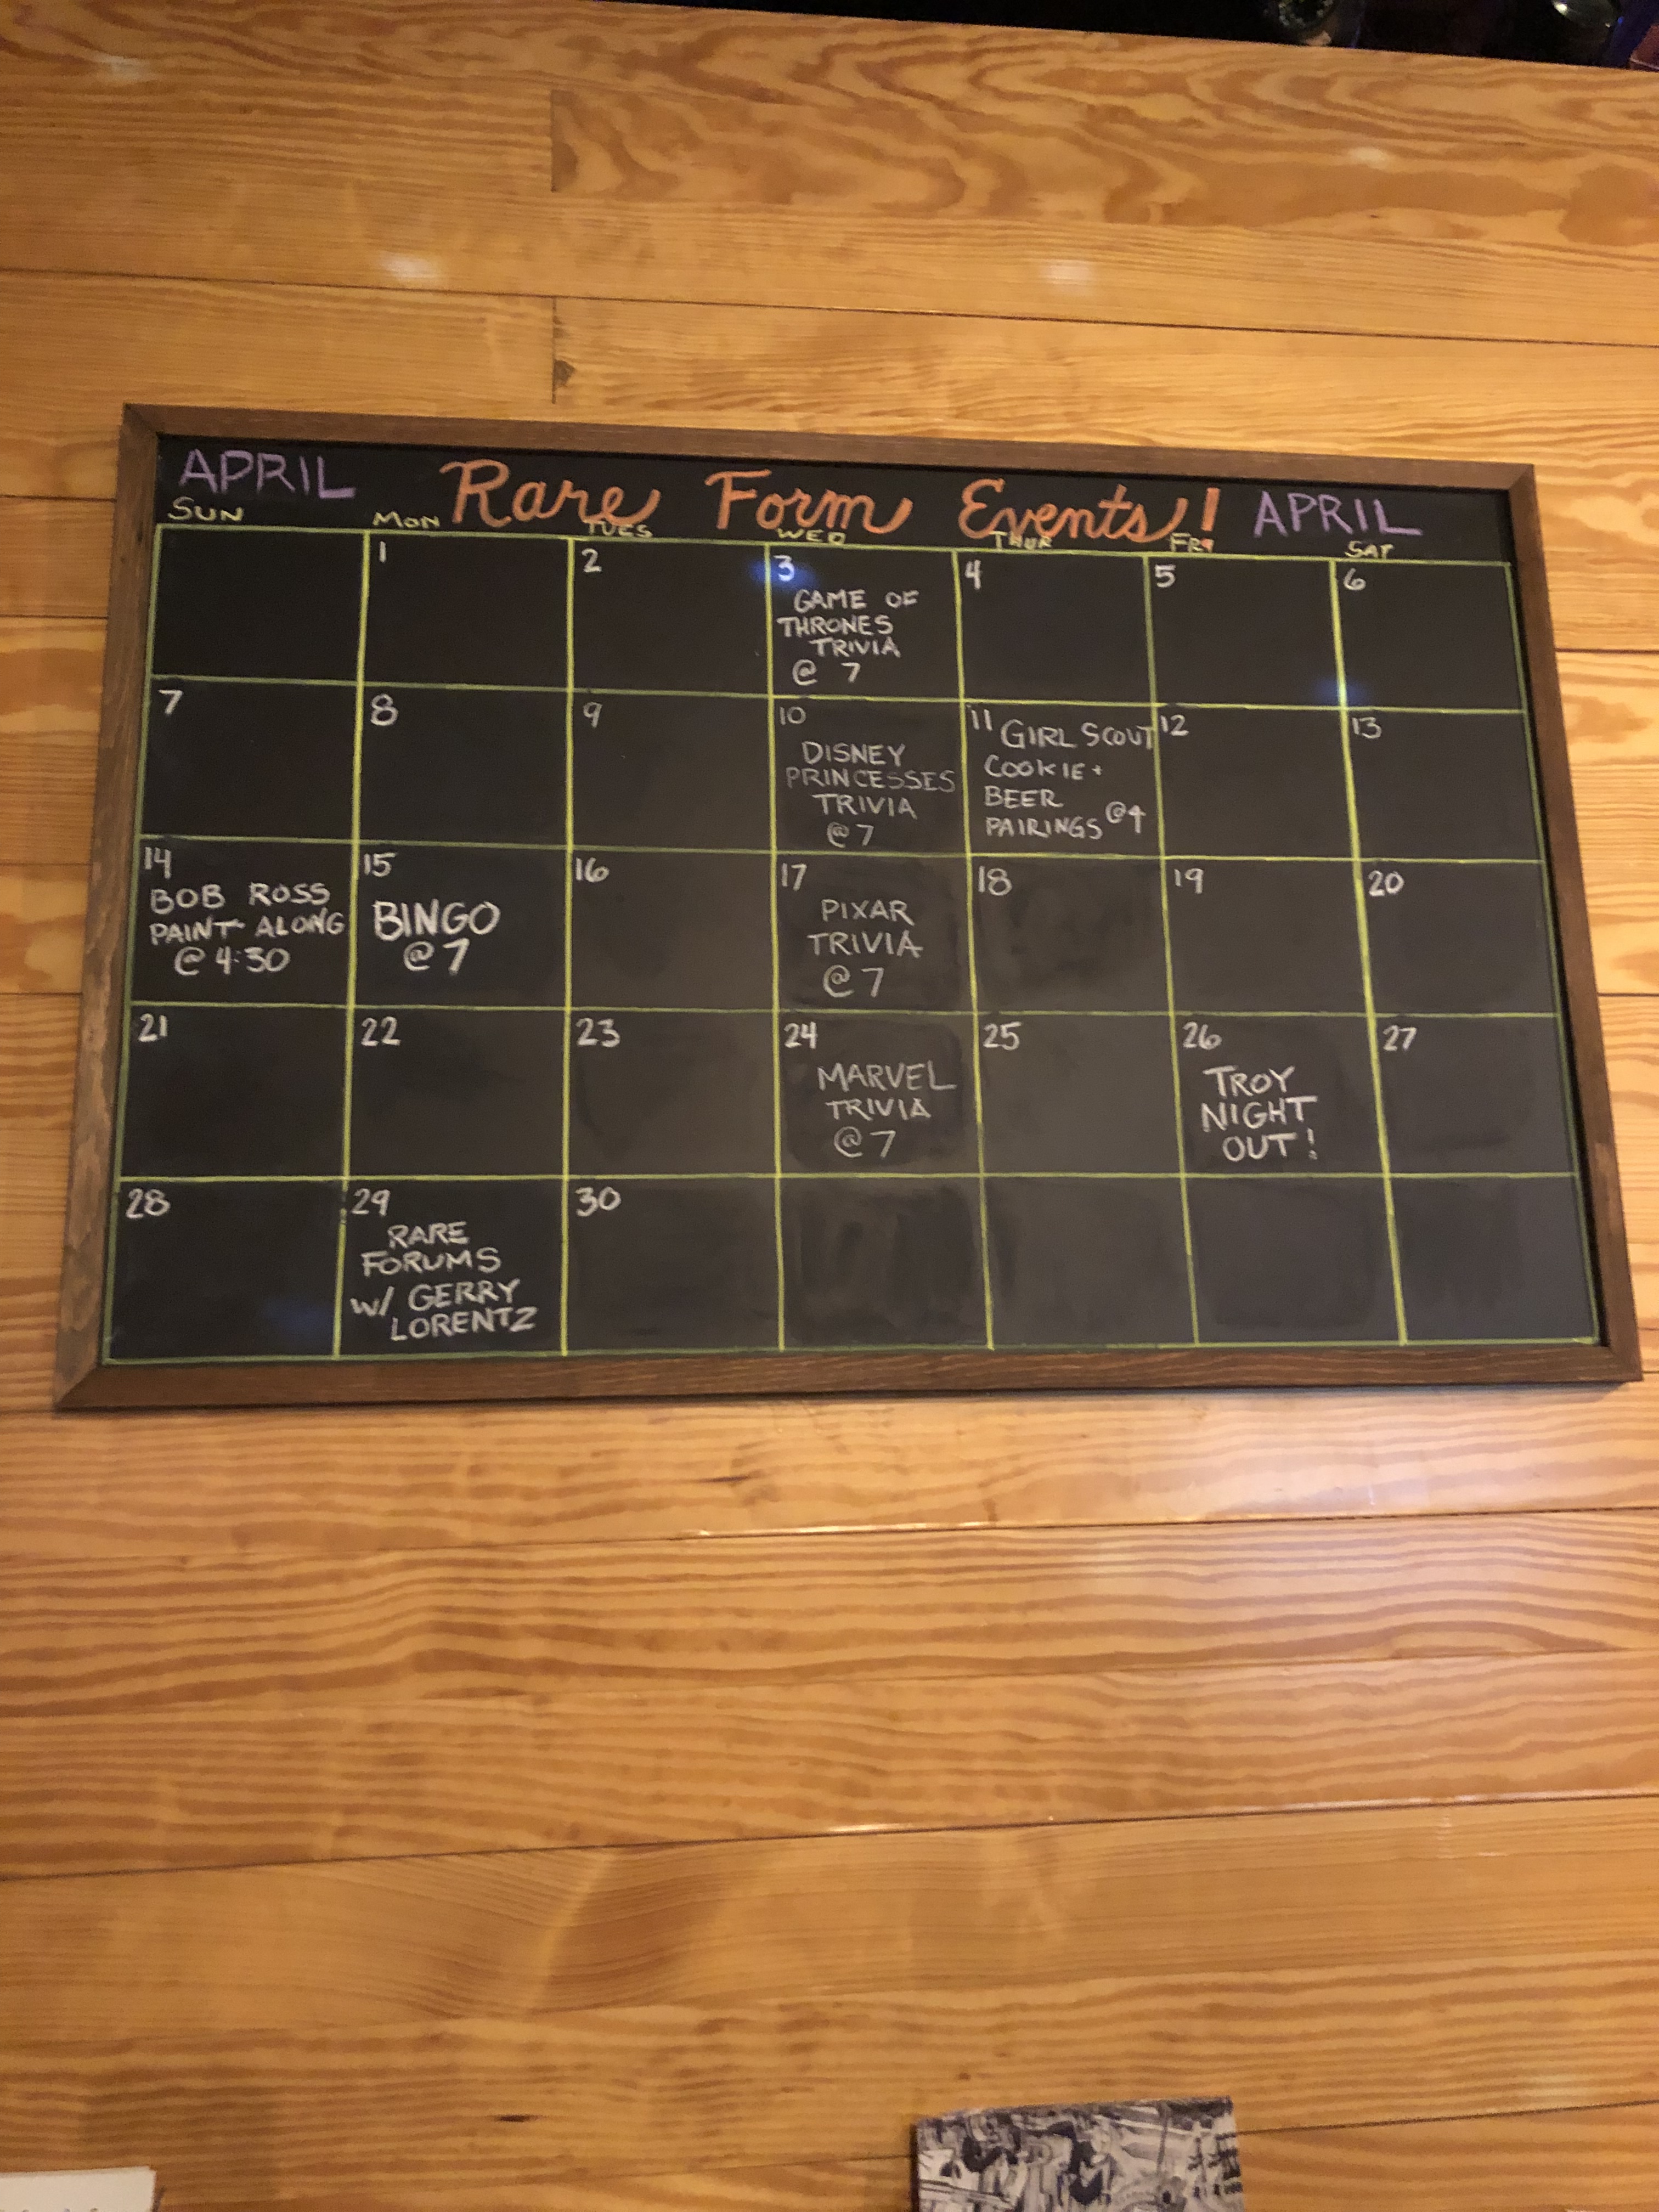 APRIL Rare Form Events! APRIL
SUN MON TUES WED THUR FRI SAT
1 2 3 4 5 6
GAME OF
THRONES
TRIVIA
@ 7
7 8 9 10 11 12 13
DISNEY
PRINCESSES
TRIVIA
@ 7
GIRL SCOUT
COOKIE +
BEER
PAIRINGS @4
14 15 16 17 18 19 20
BOB ROSS
PAINT ALONG
@ 4:30
BINGO
@ 7
PIXAR
TRIVIA
@ 7
21 22 23 24 25 26 27
MARVEL
TRIVIA
@ 7
TROY
NIGHT
OUT!
28 29 30
RARE
FORUMS
w/ GERRY
LORENTZ